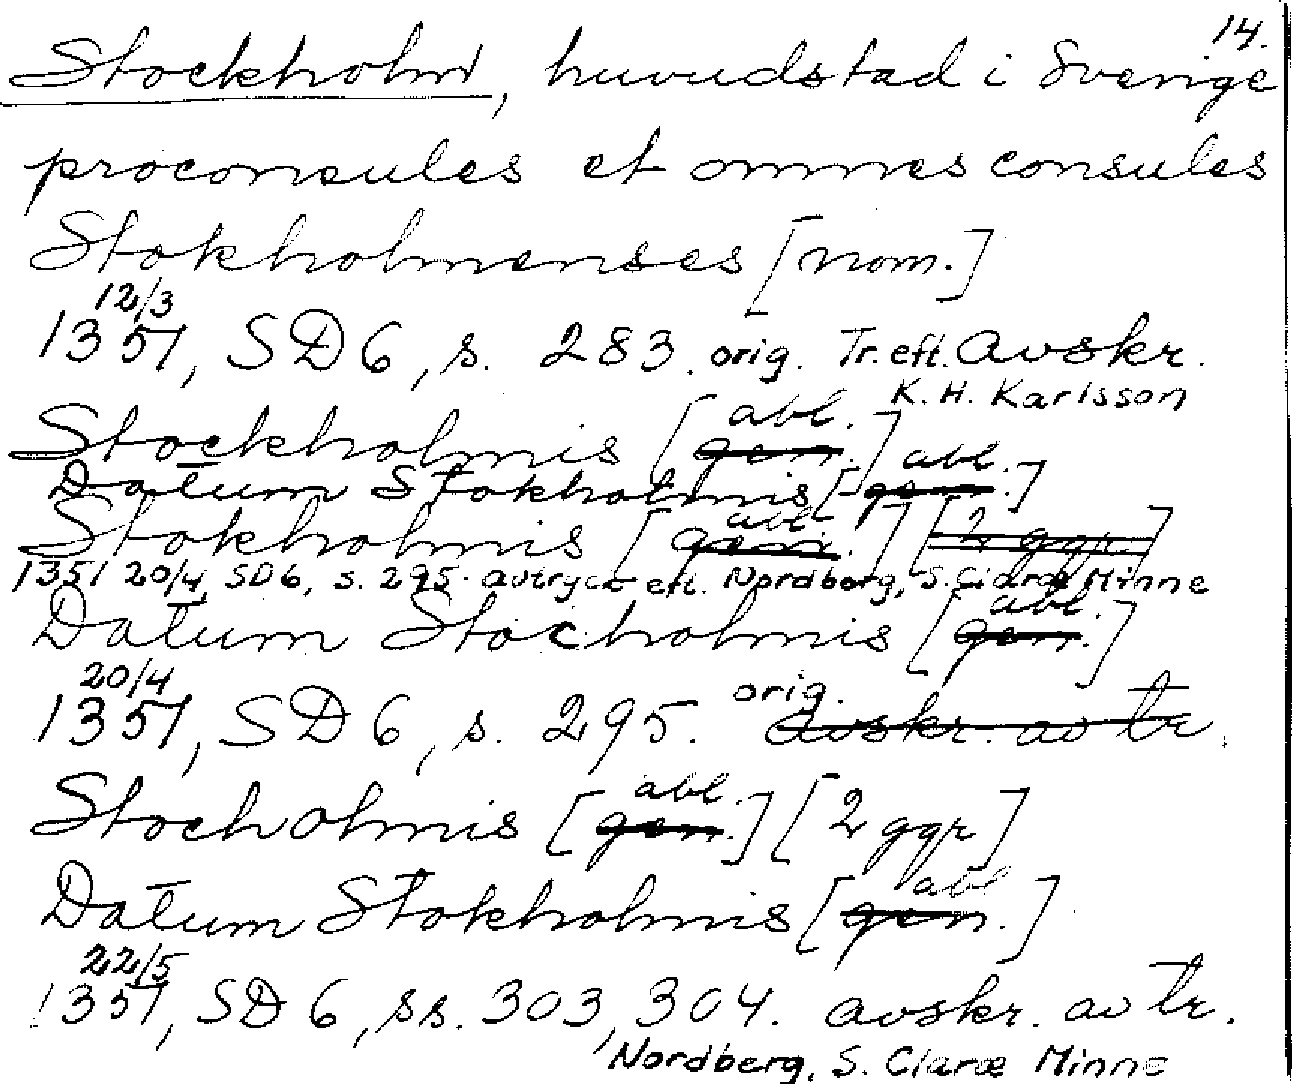 14.
Stockholm, huvudstad i Sverige
proconsules et omnes consules
Stokholmenses [nom.]
12/3
1351, SD 6, s. 283. orig. Tr. eft. Avskr.
K. H. Karlsson
abl.
Stockholmis [gen.]
abl.
Datum Stokholmis [gen.]
abl.
Stokholmis [gen.] [2 ggr]
1351 20/4, SD 6, s. 295. avtryck eft. Nordberg, S. Claræ Minne
abl.
Datum Stocholmis [gen.]
20/4
orig.
1351, SD 6, s. 295. avskr. av tr.
abl.
Stocholmis [gen.] [2 ggr]
abl
Datum Stokholmis [gen.]
22/5
1351, SD 6, ss. 303, 304. avskr. av tr.
Nordberg, S. Claræ Minne